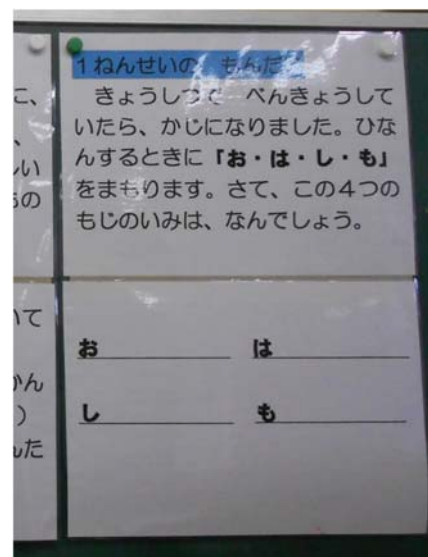 こ、
、
しい
もの
いて
かん
）
んた
1ねんせいの もんだい
きょうしつで べんきょうして
いたら、かじになりました。ひな
んするときに「お・は・し・も」
をまもります。さて、この4つの
もじのいみは、なんでしょう。
お は
し も